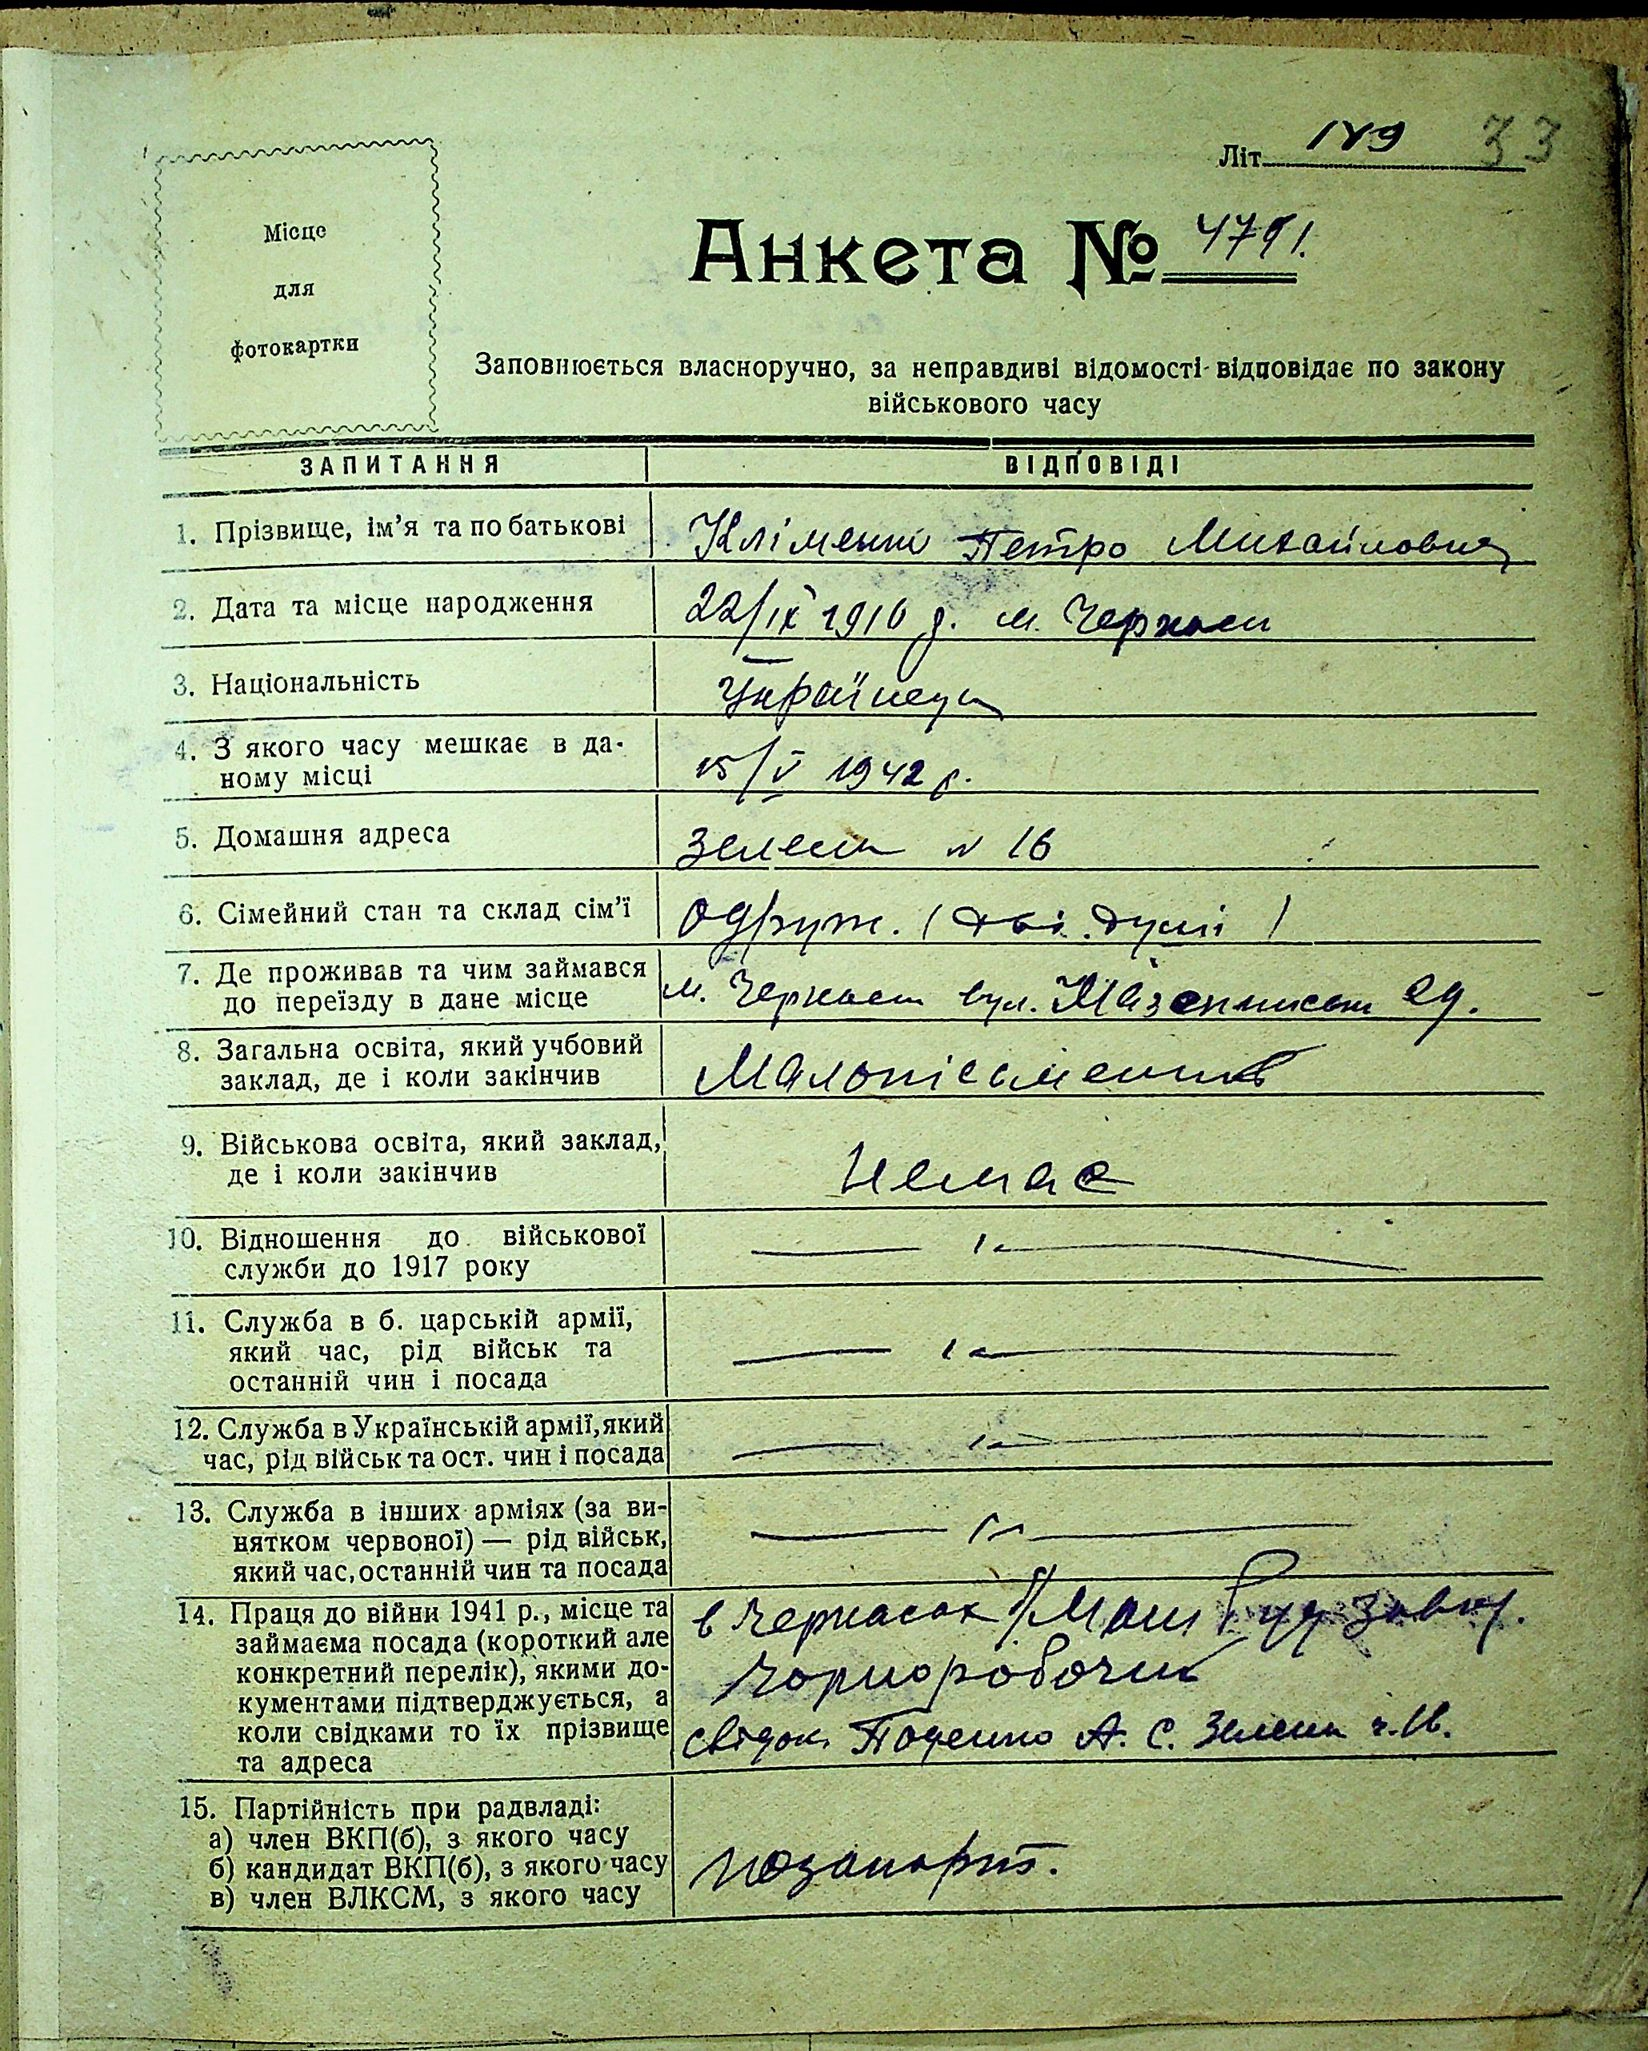 Літ 189 33
Місце
для
фотокартки
Анкета № 4791.
Заповнюється власноручно, за неправдиві відомості відповідає по закону
військового часу
ЗАПИТАННЯ ВІДПОВІДІ
1. Прізвище, ім'я та по батькові Кліменко Петро Михайлович
2. Дата та місце народження 22/IX 1910 р. м. Черкаси
3. Національність Українець
4. З якого часу мешкає в да-
ному місці 15/V 1942 р.
5. Домашня адреса Зелена № 16
6. Сімейний стан та склад сім'ї Одруж. (дві душі)
7. Де проживав та чим займався
до переїзду в дане місце м. Черкаси вул.
8. Загальна освіта, який учбовий
заклад, де і коли закінчив Малопісьменний
9. Військова освіта, який заклад,
де і коли закінчив Немає
10. Відношення до військової
служби до 1917 року — " —
11. Служба в б. царській армії,
який час, рід військ та
останній чин і посада — " —
12. Служба в Українській армії, який
час, рід військ та ост. чин і посада — " —
13. Служба в інших арміях (за ви-
нятком червоної) — рід військ,
який час, останній чин та посада — " —
14. Праця до війни 1941 р., місце та
займаєма посада (короткий але
конкретний перелік), якими до-
кументами підтверджується, а
коли свідками то їх прізвище
та адреса
в Черкасах Маш Буд завод.
Чорноробочий
свідок А. С. Зелена
15. Партійність при радвладі:
а) член ВКП(б), з якого часу
б) кандидат ВКП(б), з якого часу
в) член ВЛКСМ, з якого часу
позапарт.